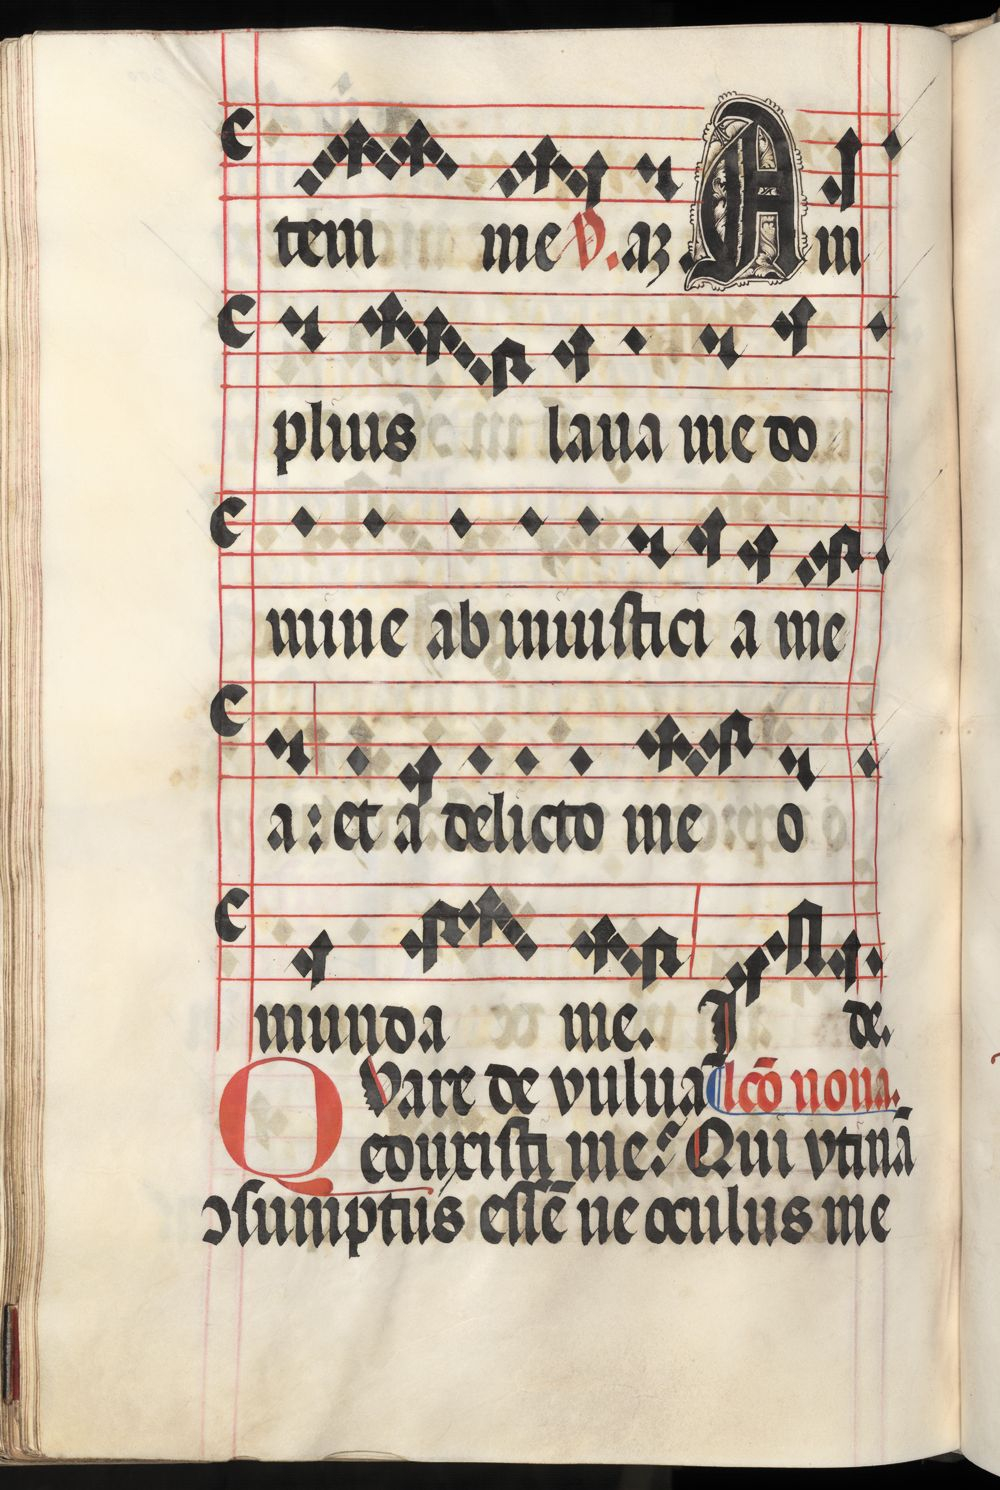 tem me V. aꝫ Am
plius laua me do
mine ab iniusticia me
a: et a delicto me o
munda me. I de.
Quare de vulua lcō noua.
eduxisti me? Qui vtinā
ↄsumptus essē ne oculus me